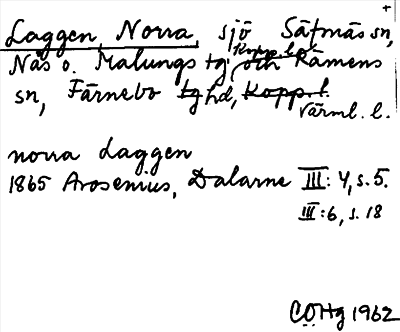 +
Laggen, Norra, sjö Säfsnäs sn,
Nås o. Malungs tg, Kopp. l. och Rämens
sn, Färnebo tg hd, Kopp. l.
Värml. l.
norra Laggen
1865 Arosenius, Dalarne III: 4, s. 5.
III: 6, s. 18
COHg 1962